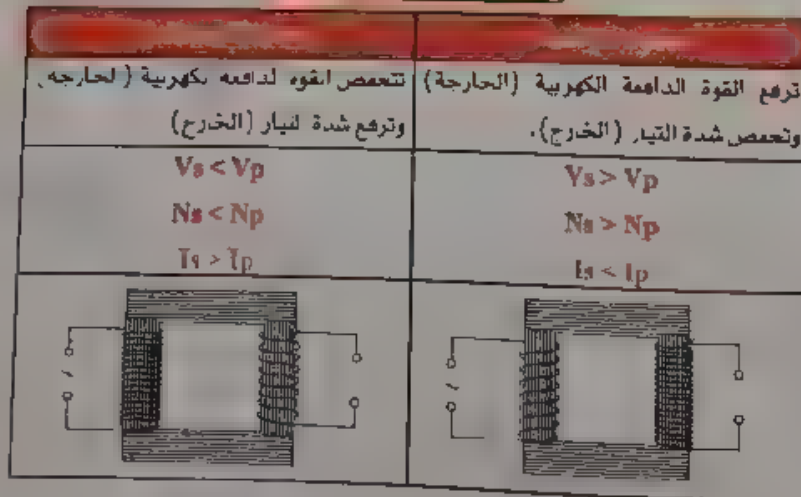 ترفع القوة الدافعة الكهربية (الخارجة)
وتخفض شدة التيار (الخارج).
Vs > Vp
Ns > Np
Is < Ip
تنخفض القوة الدافعة الكهربية (الخارجة)
وترفع شدة التيار (الخارج)
Vs < Vp
Ns < Np
Is > Ip